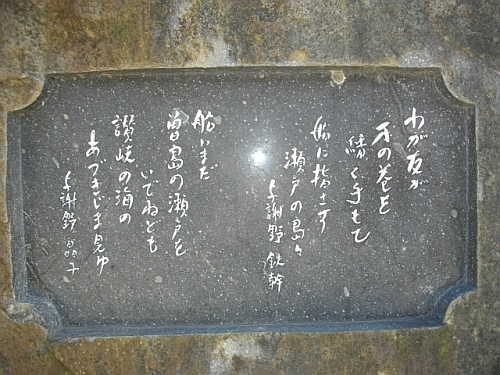 わが友が
の巻を
繙く手もて
船に指さす
瀬戸の島々
与謝野 鉄幹
船いまだ
島の瀬戸を
いでねども
讃岐の海の
あづきじま見ゆ
与謝野 晶子